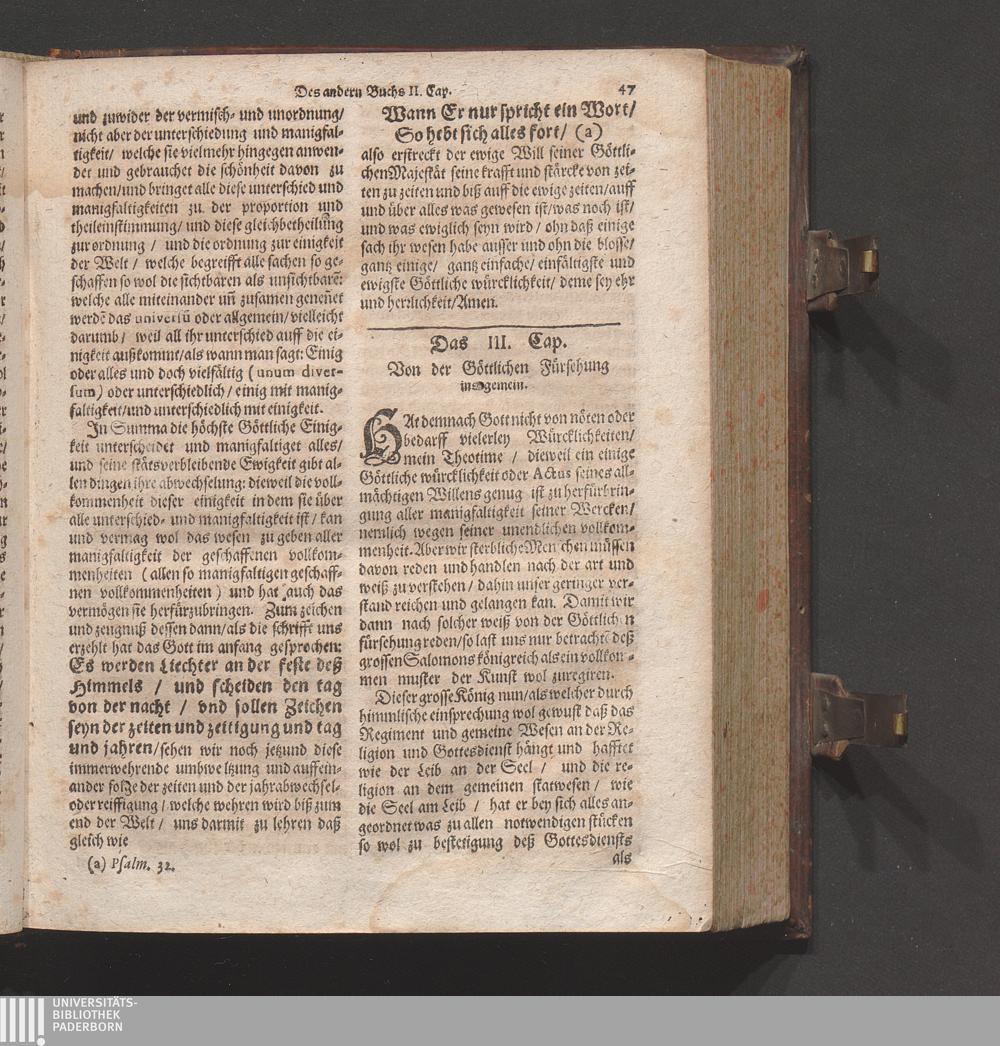 Des andern Buchs II. Cap. 47
und zuwider der vermisch- und unordnung/
nicht aber der unterschiedung und manigfal-
tigkeit/ welche sie vielmehr hingegen anwen-
det und gebrauchet die schönheit davon zu
machen/und bringet alle diese unterschied und
manigfaltigkeiten zu der proportion und
theileinstimmung/ und diese gleichbetheilung
zur ordnung / und die ordnung zur einigkeit
der Welt / welche begreifft alle sachen so ge-
schaffen so wol die sichtbaren als unsichtbarē:
welche alle miteinander uñ zusamen geneñet
werdē das universū oder allgemein/vielleicht
darumb/ weil all ihr unterschied auff die ei-
nigkeit außkommt/als wann man sagt: Einig
oder alles und doch vielfältig (unum diver-
sum) oder unterschiedlich/einig mit manig-
faltigkeit/und unterschiedlich mit einigkeit.
In Summa die höchste Göttliche Einig-
keit unterscheidet und manigfaltiget alles/
und seine stätsverbleibende Ewigkeit gibt al-
len dingen ihre abwechselung: dieweil die voll-
kommenheit dieser einigkeit in dem sie über
alle unterschied- und manigfaltigkeit ist/ kan
und vermag wol das wesen zu geben aller
manigfaltigkeit der geschaffenen vollkom-
menheiten (allen so manigfaltigen geschaff-
nen vollkommenheiten) und hat auch das
vermögen sie herfürzubringen. Zum zeichen
und zeugnuß dessen dann/als die schrifft uns
erzehlt hat das Gott im anfang gesprochen:
Es werden Liechter an der feste deß
Himmels / und scheiden den tag
von der nacht / vnd sollen Zeichen
seyn der zeiten und zeitigung und tag
und jahren/sehen wir noch jetzund diese
immerwehrende umbweltzung und auffein-
ander folge der zeiten und der jahrabwechsel-
oder reiffigung/welche wehren wird biß zum
end der Welt/ uns darmit zu lehren daß
gleich wie
(a) Psalm. 32.
Wann Er nur spricht ein Wort/
So hebt sich alles fort/ (a)
also erstreckt der ewige Will seiner Göttli-
chen Majestät seine krafft und stärcke von zei-
ten zu zeiten und biß auff die ewige zeiten/auff
und über alles was gewesen ist/was noch ist/
und was ewiglich seyn wird/ ohn daß einige
sach ihr wesen habe ausser und ohn die blosse/
gantz einige/ gantz einfache/ einfältigste und
ewigste Göttliche würcklichkeit/ deme sey ehr
und herrlichkeit/Amen.
Das III. Cap.
Von der Göttlichen Fürsehung
insgemein.
HAt demnach Gott nicht von nöten oder
bedarff vielerley Würcklichkeiten/
mein Theotime / dieweil ein einige
Göttliche würcklichkeit oder Actus seines all-
mächtigen Willens genug ist zu herfürbrin-
gung aller manigfaltigkeit seiner Wercken/
nemlich wegen seiner unendlichen vollkom-
menheit. Aber wir sterbliche Menschen müssen
davon reden und handlen nach der art und
weiß zu verstehen/ dahin unser geringer ver-
stand reichen und gelangen kan. Damit wir
dann nach solcher weiß von der Göttlichen
fürsehung reden/so last uns nur betrachtē deß
grossen Salomons königreich als ein vollkom-
men muster der Kunst wol zuregiren.
Dieser grosse König nun/als welcher durch
himmlische einsprechung wol gewust daß das
Regiment und gemeine Wesen an der Re-
ligion und Gottesdienst hängt und hafftet
wie der Leib an der Seel / und die re-
ligion an dem gemeinen statwesen/ wie
die Seel am Leib / hat er bey sich alles an-
geordnet was zu allen notwendigen stücken
so wol zu bestetigung deß Gottesdiensts
als
UNIVERSITÄTS-
BIBLIOTHEK
PADERBORN